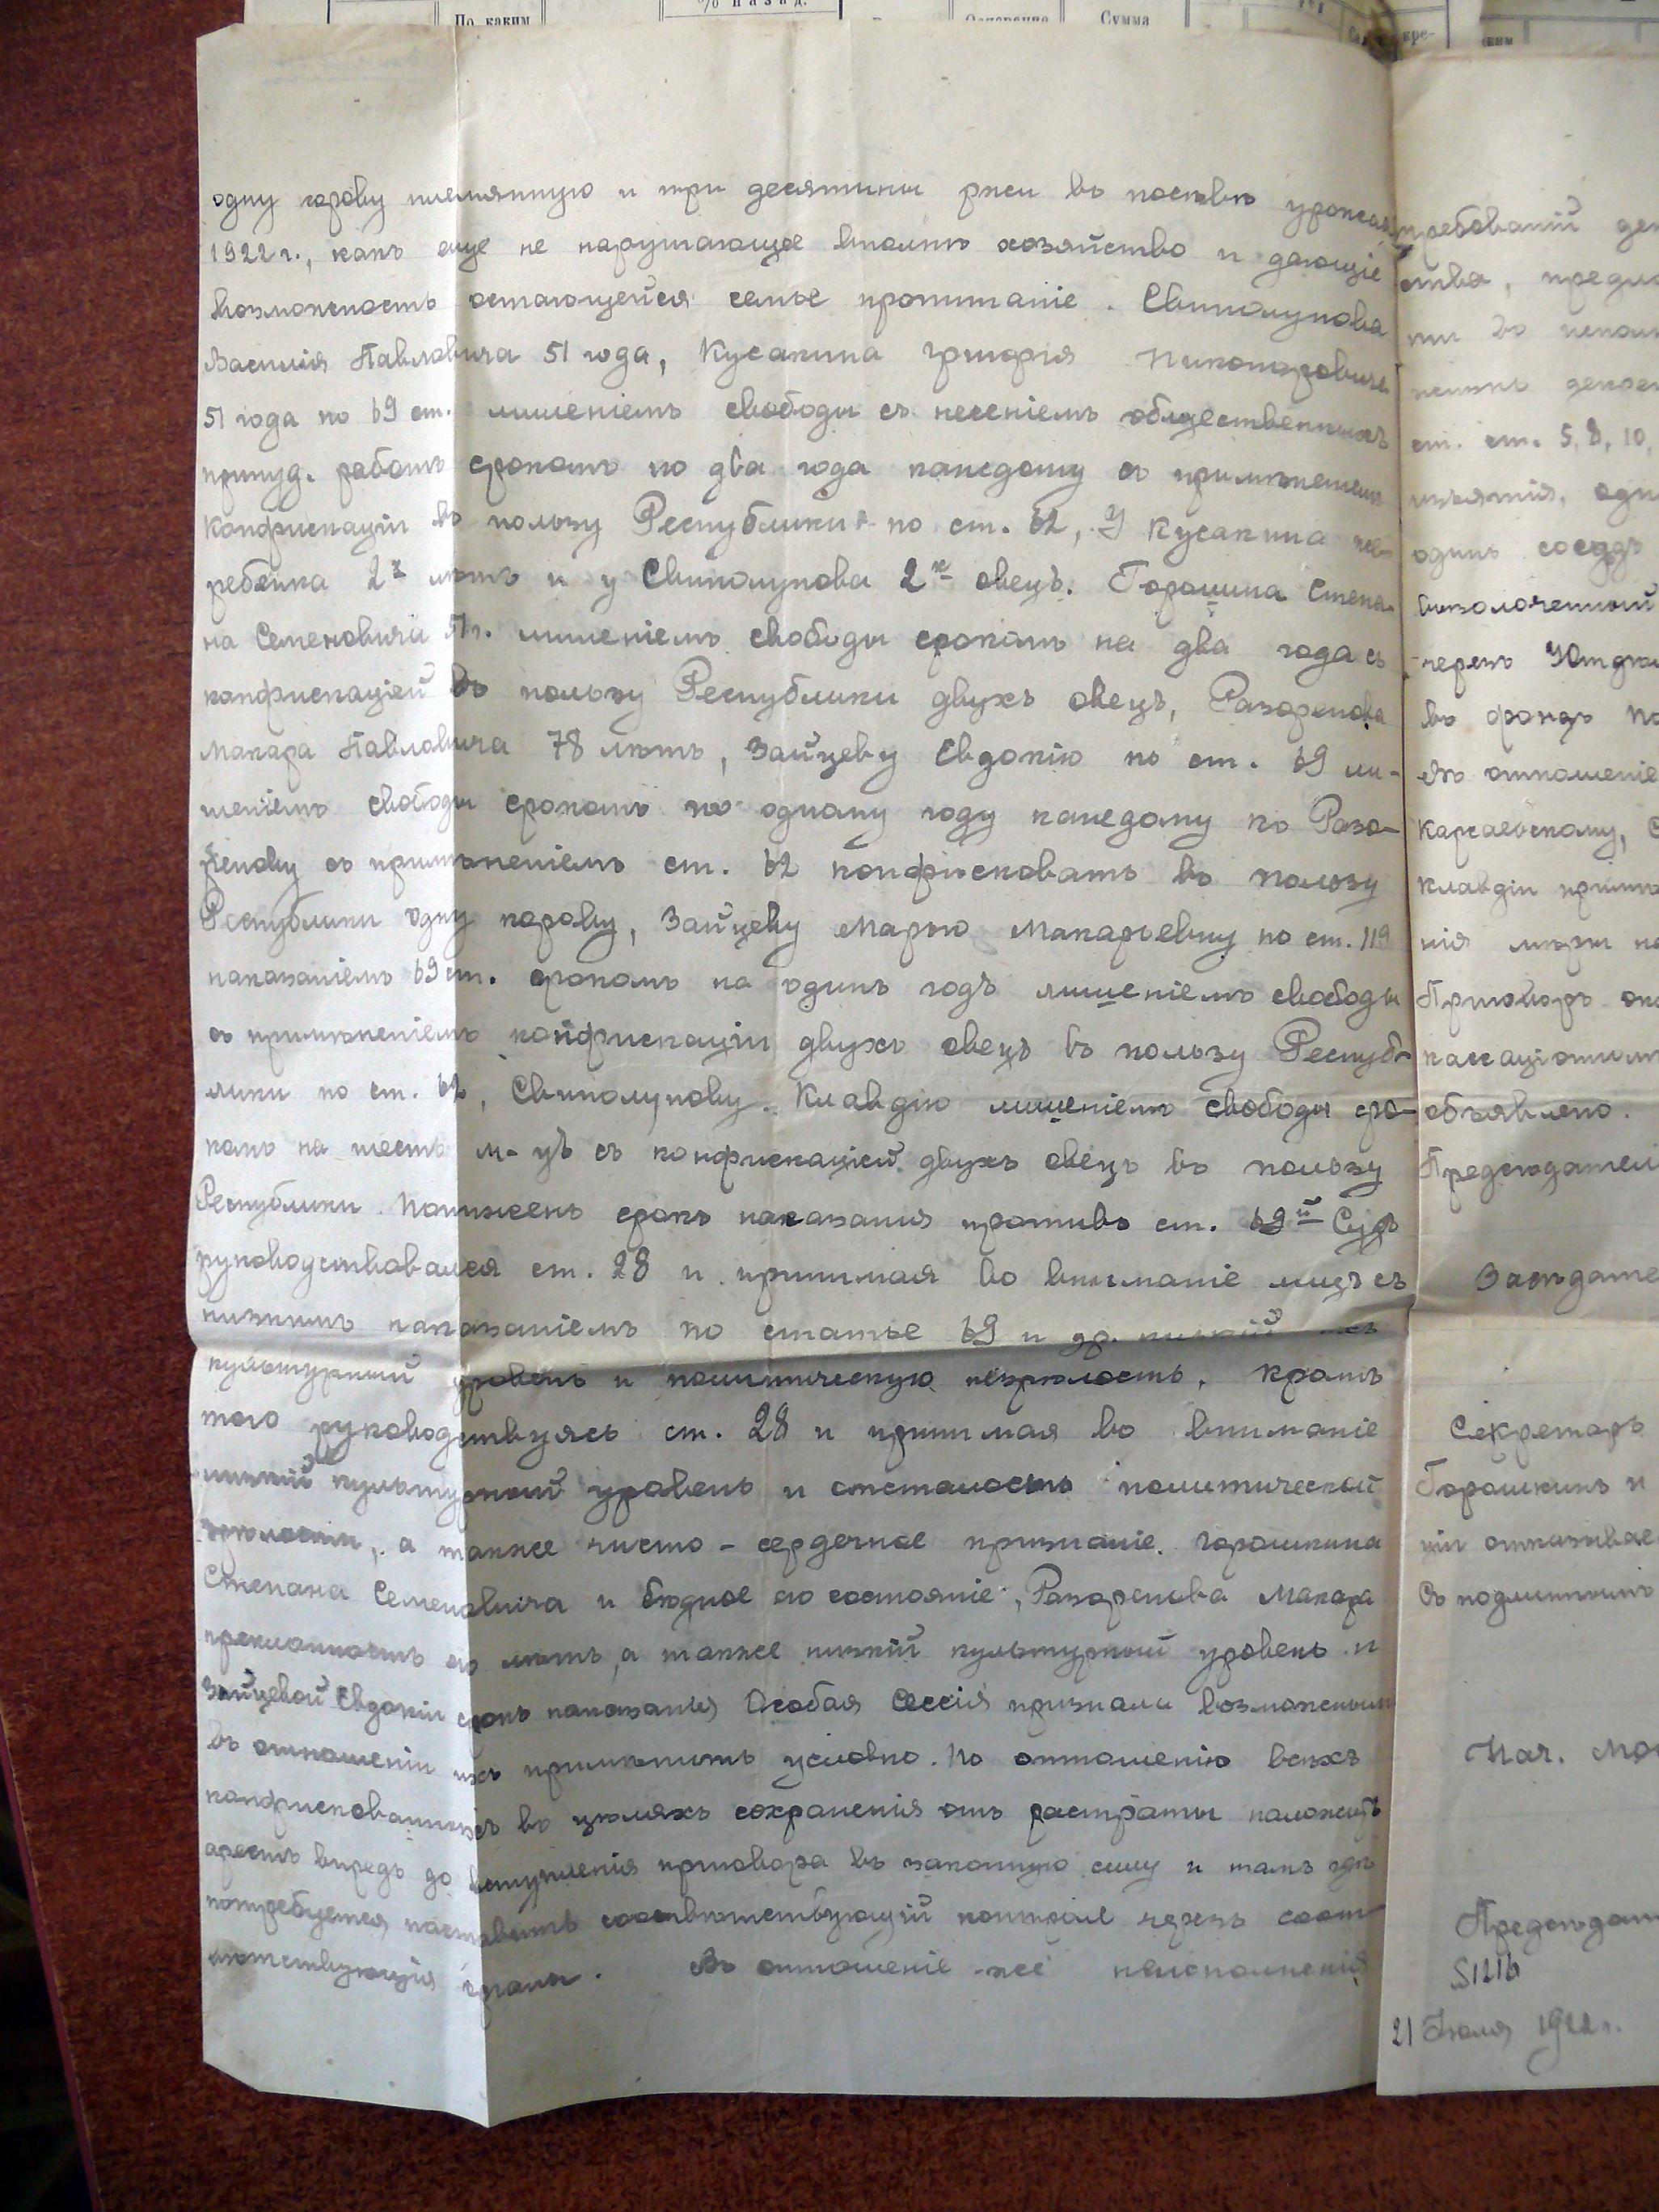 По каким
% назад.
Основание
Сумма
одну корову племянную и три десятины ржи въ посѣвѣ урожая
1922 г., какъ еще не нарушающее вполнѣ хозяйство и дающіе
возможность остающейся семье пропитаніе. Свинолупова
Василія Павловича 51 года, Кусакина Григорія Никоноровича
51 года по 69 ст. лишеніемъ свободы съ несеніемъ общественныхъ
принуд. работъ срокомъ по два года каждому съ примѣненіемъ
конфискаціи въ пользу Республики по ст. 62, У Кусакина же-
ребенка 2х лѣтъ и у Свинолупова 2х овецъ. Горошина Степа-
на Семеновича 51 г. лишеніемъ свободы срокомъ на два года съ
конфискаціей въ пользу Республики двухъ овецъ, Разоренова
Макара Павловича 78 лѣтъ, Зайцеву Евдокію по ст. 69 ли-
шеніемъ свободы срокомъ по одному году каждому къ Разо-
ренову съ примѣненіемъ ст. 62 конфисковать въ пользу
Республики одну корову, Зайцеву Марью Макарьевну по ст. 119
наказаніемъ 69 ст. срокомъ на одинъ годъ лишеніемъ свободы
съ примѣненіемъ конфискаціи двухъ овецъ въ пользу Респуб-
лики по ст. 62, Свинолупову Клавдію лишеніемъ свободы сро-
комъ на шесть м-цѣ съ конфискаціей двухъ овецъ въ пользу
Республики. Пониженъ срокъ наказанія противъ ст. 69й Судъ
руководствовался ст. 28 и принимая во вниманіе лицъ съ
низкимъ наказаніемъ по статье 69 и др. низкій ихъ
культурный уровень и политическую незрѣлость. Кромѣ
того руководствуясь ст. 28 и принимая во вниманіе
низкій культурный уровень и отсталость политической
зрѣлости, а также чисто-сердечное признаніе Горошкина
Степана Семеновича и бѣдное его состояніе, Разоренова Макара
преклонность его лѣтъ, а также низкій культурный уровень и
Зайцевой Евдокіи срокъ наказанія Особая Сессія признала возможнымъ
въ отношеніи ихъ примѣнить условно. По отношенію всѣхъ
конфискованныхъ въ цѣляхъ сохраненія отъ растраты наложить
арестъ впредь до вступленія приговора въ законную силу и тамъ гдѣ
потребуется поставить соотвѣтствующій контроль черезъ соот-
вѣтствующія органы. Въ отношеніе же неисполненія
требованій
ства,
ст. ст. 5, 8, 10,
изъятія,
одинъ сосудъ
вызолоченный
черезъ
въ фондъ
въ отношеніе
Карсаевскому,
Клавдіи
нія мѣры
Приговоръ
кассаціонномъ
объявлено.
Секретарь
Горошкинъ и
Съ подлиннымъ
Нач.
S1216
21 Іюля 1922 г.